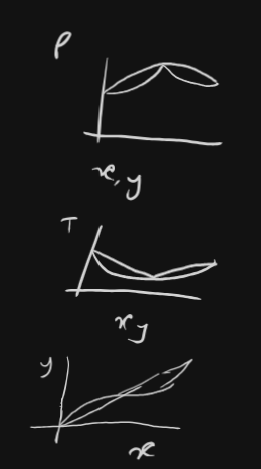 P
x, y
T
x y
y
x